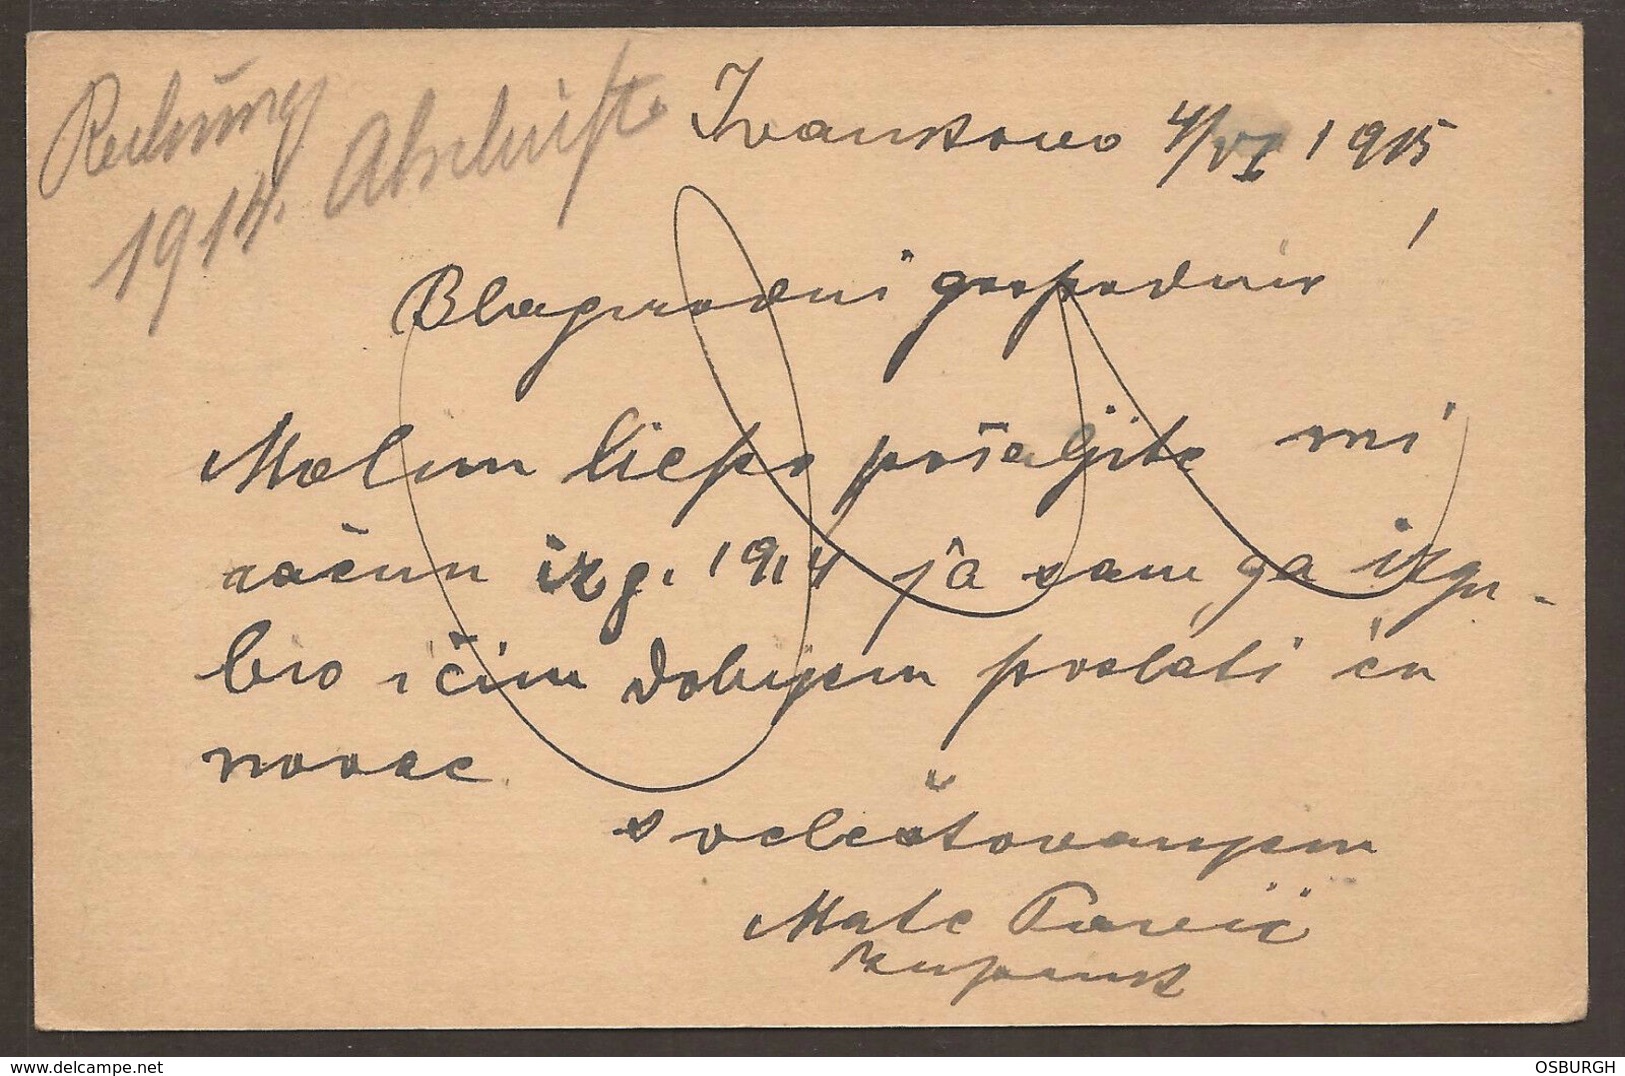 Rechnung
1914. Abschrift.
Ivankovo 4/VI 1915
Blagorodni gospodine !
Molim liepo pošaljite mi
račun iz g. 1914 ja sam ga izgu-
bio i čim dobijem poslati ću
novac
s velečtovanjem
Mate
župnik
delcampe.net
OSBURGH